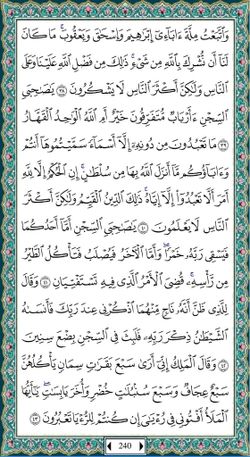 وَٱتَّبَعْتُ مِلَّةَ ءَابَآءِىٓ إِبْرَٰهِيمَ وَإِسْحَٰقَ وَيَعْقُوبَ ۚ مَا كَانَ
لَنَآ أَن نُّشْرِكَ بِٱللَّهِ مِن شَىْءٍ ۚ ذَٰلِكَ مِن فَضْلِ ٱللَّهِ عَلَيْنَا وَعَلَى
ٱلنَّاسِ وَلَٰكِنَّ أَكْثَرَ ٱلنَّاسِ لَا يَشْكُرُونَ ٣٨ يَٰصَىٰحِبَىِ
ٱلسِّجْنِ ءَأَرْبَابٌ مُّتَفَرِّقُونَ خَيْرٌ أَمِ ٱللَّهُ ٱلْوَٰحِدُ ٱلْقَهَّارُ
٣٩ مَا تَعْبُدُونَ مِن دُونِهِۦٓ إِلَّآ أَسْمَآءً سَمَّيْتُمُوهَآ أَنتُمْ
وَءَابَآؤُكُم مَّآ أَنزَلَ ٱللَّهُ بِهَا مِن سُلْطَٰنٍ ۚ إِنِ ٱلْحُكْمُ إِلَّا لِلَّهِ ۚ
أَمَرَ أَلَّا تَعْبُدُوٓا۟ إِلَّآ إِيَّاهُ ۚ ذَٰلِكَ ٱلدِّينُ ٱلْقَيِّمُ وَلَٰكِنَّ أَكْثَرَ
ٱلنَّاسِ لَا يَعْلَمُونَ ٤٠ يَٰصَىٰحِبَىِ ٱلسِّجْنِ أَمَّآ أَحَدُكُمَا
فَيَسْقِى رَبَّهُۥ خَمْرًا ۖ وَأَمَّا ٱلْءَاخَرُ فَيُصْلَبُ فَتَأْكُلُ ٱلطَّيْرُ
مِن رَّأْسِهِۦ ۚ قُضِىَ ٱلْأَمْرُ ٱلَّذِى فِيهِ تَسْتَفْتِيَانِ ٤١ وَقَالَ
لِلَّذِى ظَنَّ أَنَّهُۥ نَاجٍ مِّنْهُمَا ٱذْكُرْنِى عِندَ رَبِّكَ فَأَنسَىٰهُ
ٱلشَّيْطَٰنُ ذِكْرَ رَبِّهِۦ فَلَبِثَ فِى ٱلسِّجْنِ بِضْعَ سِنِينَ
٤٢ وَقَالَ ٱلْمَلِكُ إِنِّىٓ أَرَىٰ سَبْعَ بَقَرَٰتٍ سِمَانٍ يَأْكُلُهُنَّ
سَبْعٌ عِجَافٌ وَسَبْعَ سُنۢبُلَٰتٍ خُضْرٍ وَأُخَرَ يَابِسَٰتٍ ۖ يَٰٓأَيُّهَا
ٱلْمَلَأُ أَفْتُونِى فِى رُءْيَٰىَ إِن كُنتُمْ لِلرُّءْيَا تَعْبُرُونَ ٤٣
240